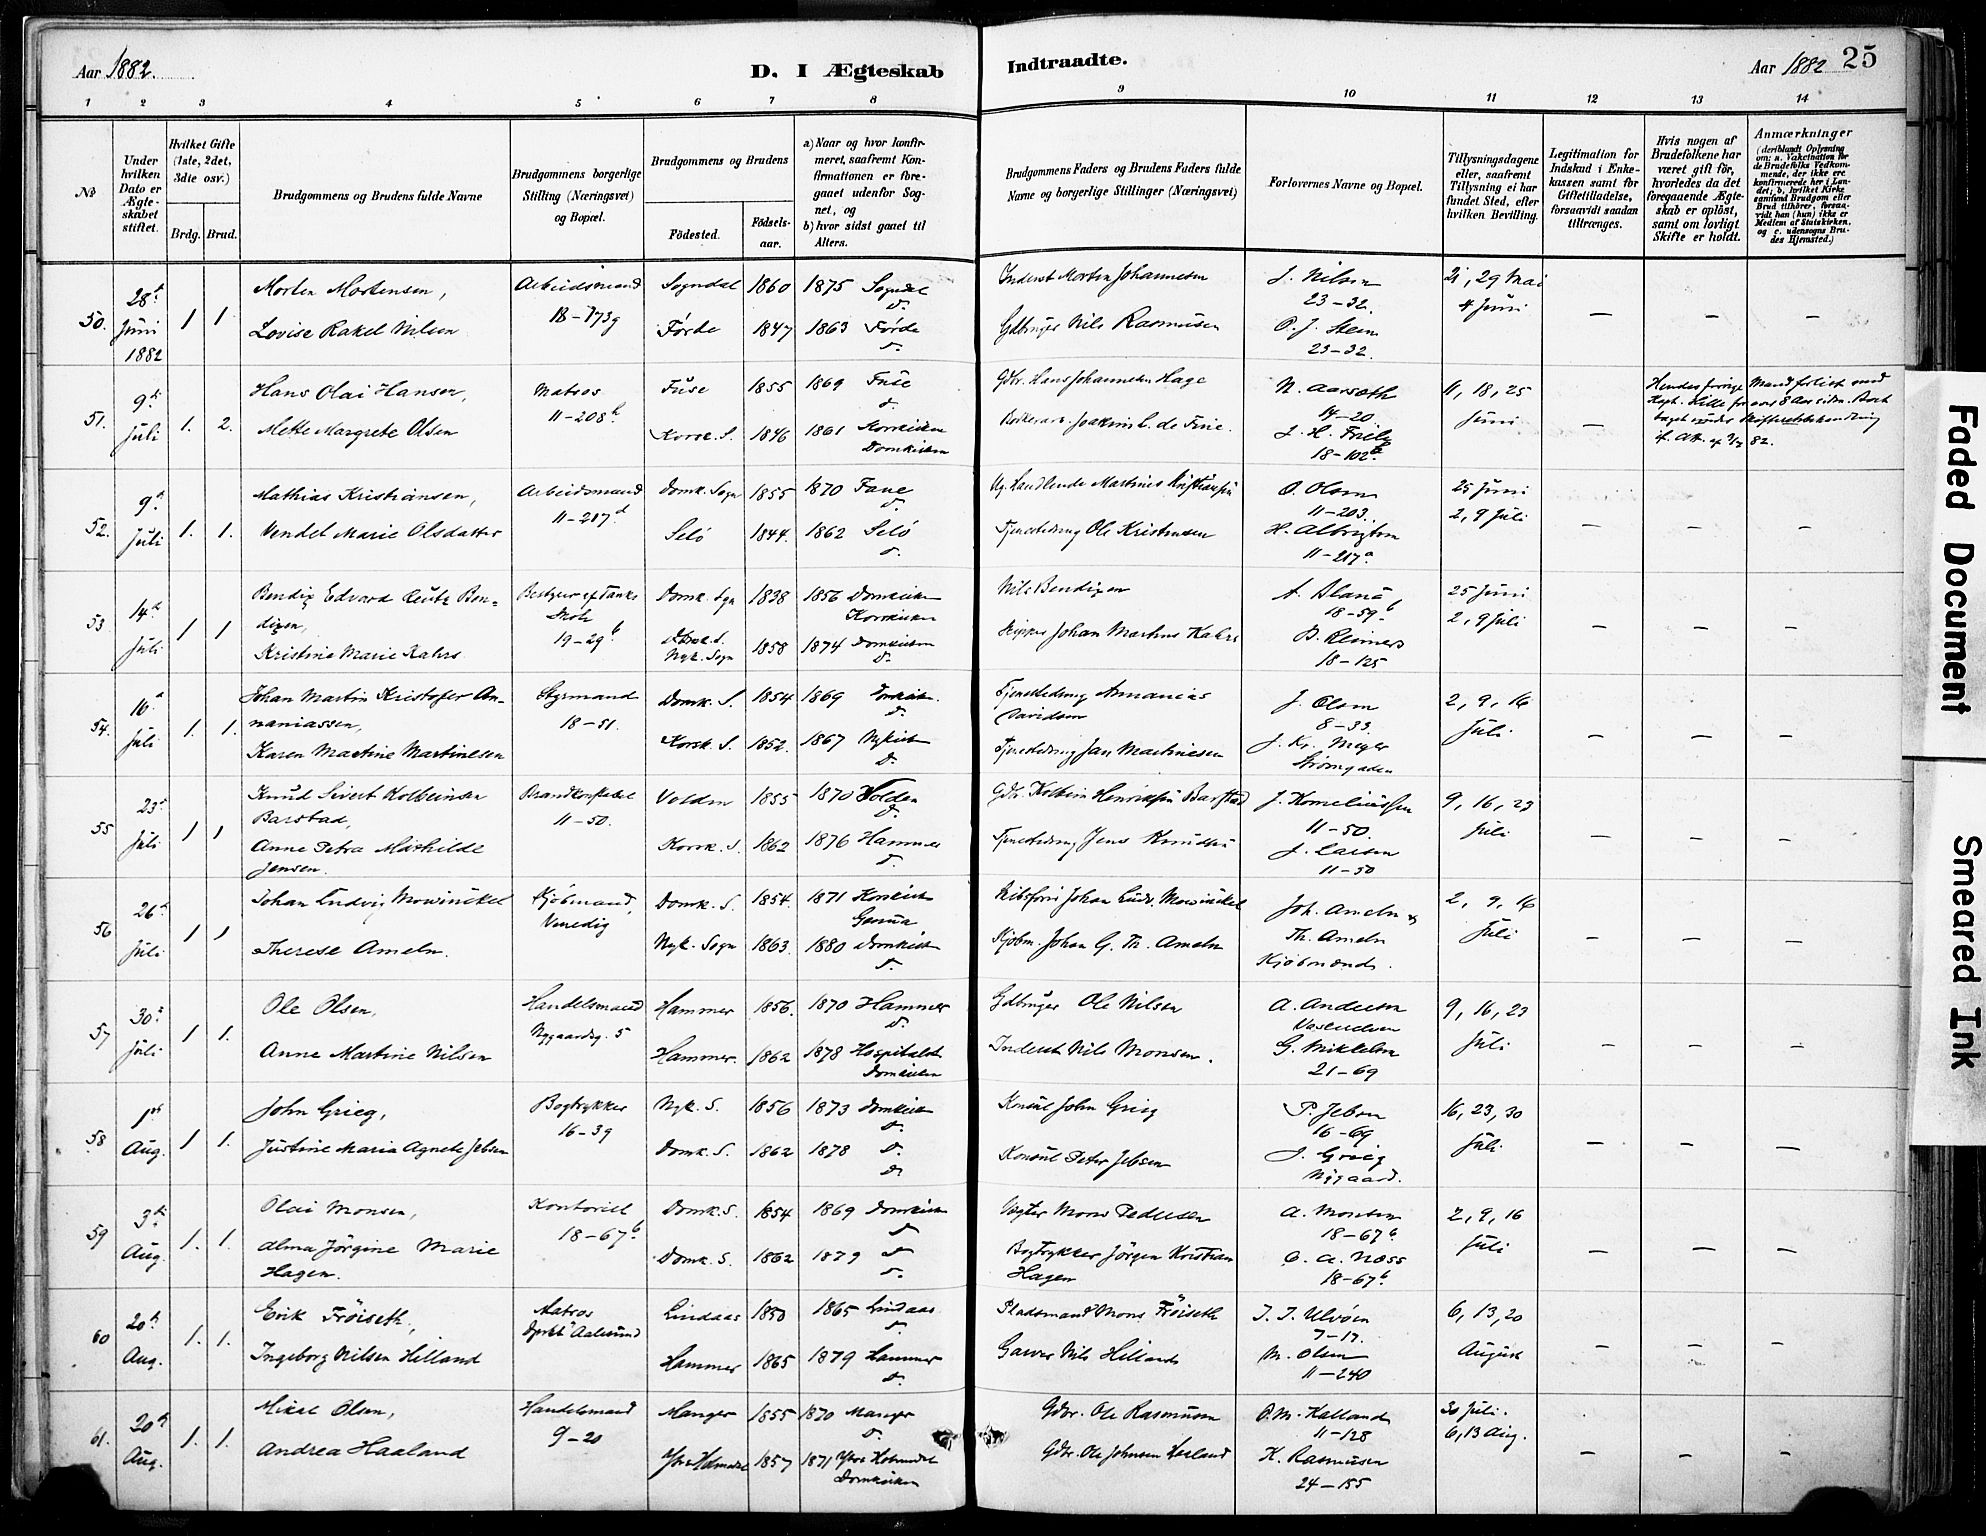 Aar 1882.
D. I Ægteskab
Indtraadte.
Aar 1882 25
1 2 3 4 5 6 7 8 9 10 11 12 13 14
No
Under hvilken Dato er Ægteskabet stiftet.
Hvilket Gifte (1ste, 2det, 3die osv.)
Brdg. Brud.
Brudgommens og Brudens fulde Navne
Brudgommens borgerlige Stilling (Næringsvei) og Bopæl.
Brudgommens og Brudens
Fødested.
Fødselsaar.
a) Naar og hvor konfirmeret, saafremt Konfirmationen er foregaaet udenfor Sognet, og
b) hvor sidst gaaet til Alters.
Brudgommens Faders og Brudens Faders fulde Navne og borgerlige Stillinger (Næringsvei)
Forlovernes Navne og Bopæl.
Tillysningsdagene eller, saafremt Tillysning ei har fundet Sted, efter hvilken Bevilling.
Legitimation for Indskud i Enkekassen samt for Giftetilladelse, forsaavidt saadan tiltrænges.
Hvis nogen af Brudefolkene har været gift før, hvorledes da det foregaaende Ægteskab er opløst, samt om lovligt Skifte er holdt.
Anmærkninger (deriblandt Oplysning om: a. Vakcination for de Brudefolks Vedkommende, der ikke ere konfirmerede her i Landet; b. hvilket Kirkesamfund Brudgom eller Brud tilhører, forsaavidt han (hun) ikke er Medlem af Statskirken, og c. udensogns Brudes Hjemsted.)
50. 28de Juni 1882 1 1
Morten Mortensen,
Arbeidsmand
18-173g
Sogndal 1860 1875 Sogndal
Inderst Morten Johannesen
J. Nilsen
23-32.
21, 29 Mai
4 Juni
Lovise Rakel Nilsen
Førde 1847 1863 Førde
Gdbruger Nils Rasmusen
O. J. Steen
23-32.
51. 9de Juli 1. 2.
Hans Olai Hansen,
Matros
11-208b
Fuse 1855 1869 Fuse
Gdbr. Hans Johannesen Hage
N. Aarseth
14-20
11, 18, 25
Juni
Mette Margrete Olsen
Korsk. S. 1846 1861 Korskirken
Domkirken
Joakim C. de Fine.
18-102
52. 9de Juli 1. 1.
Mathias Kristiansen,
Arbeidsmand
11-217d
Domk. Sogn 1855 1870 Fane
Ug. Handlende Martines Kristiansen
O. Olsen
11-203.
25 Juni
2, 9 Juli
Vendel Marie Olsdatter
Selö 1844. 1862 Selö
Ole Kristensen
H. Albrigtsen
11-217a
53 14de Juli 1 1
Bendix Edvard Reutz Bendixen,
Bestyrer af Tanks Skole
19-29b
Domk. Sgn 1838 1856 Domkirken
Korskirken
Nils Bendixen
18-59b
25 Juni
2, 9 Juli
Kristine Marie Kahrs
Nyk. Sogn 1858 1874 Domkirken
Skipper Johan Martens Kahrs
B. Reimers
18-125
54. 16de Juli 1. 1.
Johan Martin Kristofer Annaniassen,
Styrmand
18-51.
Domk. S. 1854 1869 Domkirken.
Annanias
Davidsen
J. Olsen
8-33
2, 9, 16
Juli
Karen Martine Martinesen
Korsk. S. 1852. 1867 Nykirken
Jan Martinesen
J. Kr. Meyer
Strømgaden
55 23de Juli 1 1
Knud Sivert Kolbeinsen
Barstad,
Brandkonstabel
11-50.
Volden 1855 1870 Volden
Gdbr. Kolbein Henriksen Barstad
J. Korneliussen
11-50.
9, 16, 23
Juli
Anne Petra Mathilde
Jensen.
Korsk. S. 1862 1876 Hammer
Jens Knudsen
J. Larsen
11-50
56 26de Juli 1 1
Johan Ludvig Mowinckel
Kjöbmand,
Venedig
Domk. S. 1854. 1871 Korskirken
Genua
Skibsfører Johan Ludv. Mowinckel
Joh. Ameln &
Th. Ameln
Kjöbmænd.
2, 9, 16
Juli
Therese Ameln.
Nyk. Sogn 1863. 1880 Domkirken
Kjöbm. Johan G. Th. Ameln
57 30te Juli 1 1.
Ole Olsen,
Handelsmand
Nygaardsg. 5
Hammer 1856. 1870 Hammer
Gdbruger Ole Nilsen
A. Andersen
9, 16, 23
Juli
Anne Martine Nilsen
Hammer. 1862 1878 Hospitalet
Domkirken
Inderst Nils Monsen.
G. Mikkelsen
21-69
58 1ste Aug. 1 1.
John Grieg,
Bogtrykker
16-39
Nyk. S. 1856 1873 Domkirken
Konsul John Grieg
P. Jebsen
16-69
16, 23, 30
Juli
Justine Maria Agnete Jebsen
Domk. S. 1862 1878
Konsul Peter Jebsen
J. Grieg
Nygaard.
59 3die Aug. 1. 1.
Olai Monsen,
Kontorist
18-67b
Domk. S. 1854 1869 Domkirken
Vægter Mons Pedersen
A. Monsen
18-67b
2, 9, 16
Juli
Alma Jörgine Marie
Hagen.
Domk. S. 1862 1879
Bogtrykker Jörgen Kristian
Hagen
C. A. Næss
18-67b
60 20de Aug. 1. 1.
Erik Fröiseth,
Matros
Dpskb "Aalesund
Lindaas 1850 1865 Lindaas
Pladsmand Mons Fröiseth
I. I. Ulvöen
7-17.
6, 13, 20
August
Ingeborg Nilsen Hilland
Hammer 1865 1879 Hammer
Garver Nils Hilland
M. Olsen
11-240
61. 20de Aug. 1. 1.
Mikal Olsen,
Handelsmand
9-20
Manger 1855 1870 Manger
Gdbr. Ole Rasmusen
O. M. Kalland
11-128
30 Juli.
6, 13 Aug.
Andrea Haaland
Ytre Holmedal 1857 1871 Ytre Holmedal
Domkirken
Gdbr. Ole Johnsen Haaland
K. Rasmusen
24-155
Faded Document
Smeared Ink